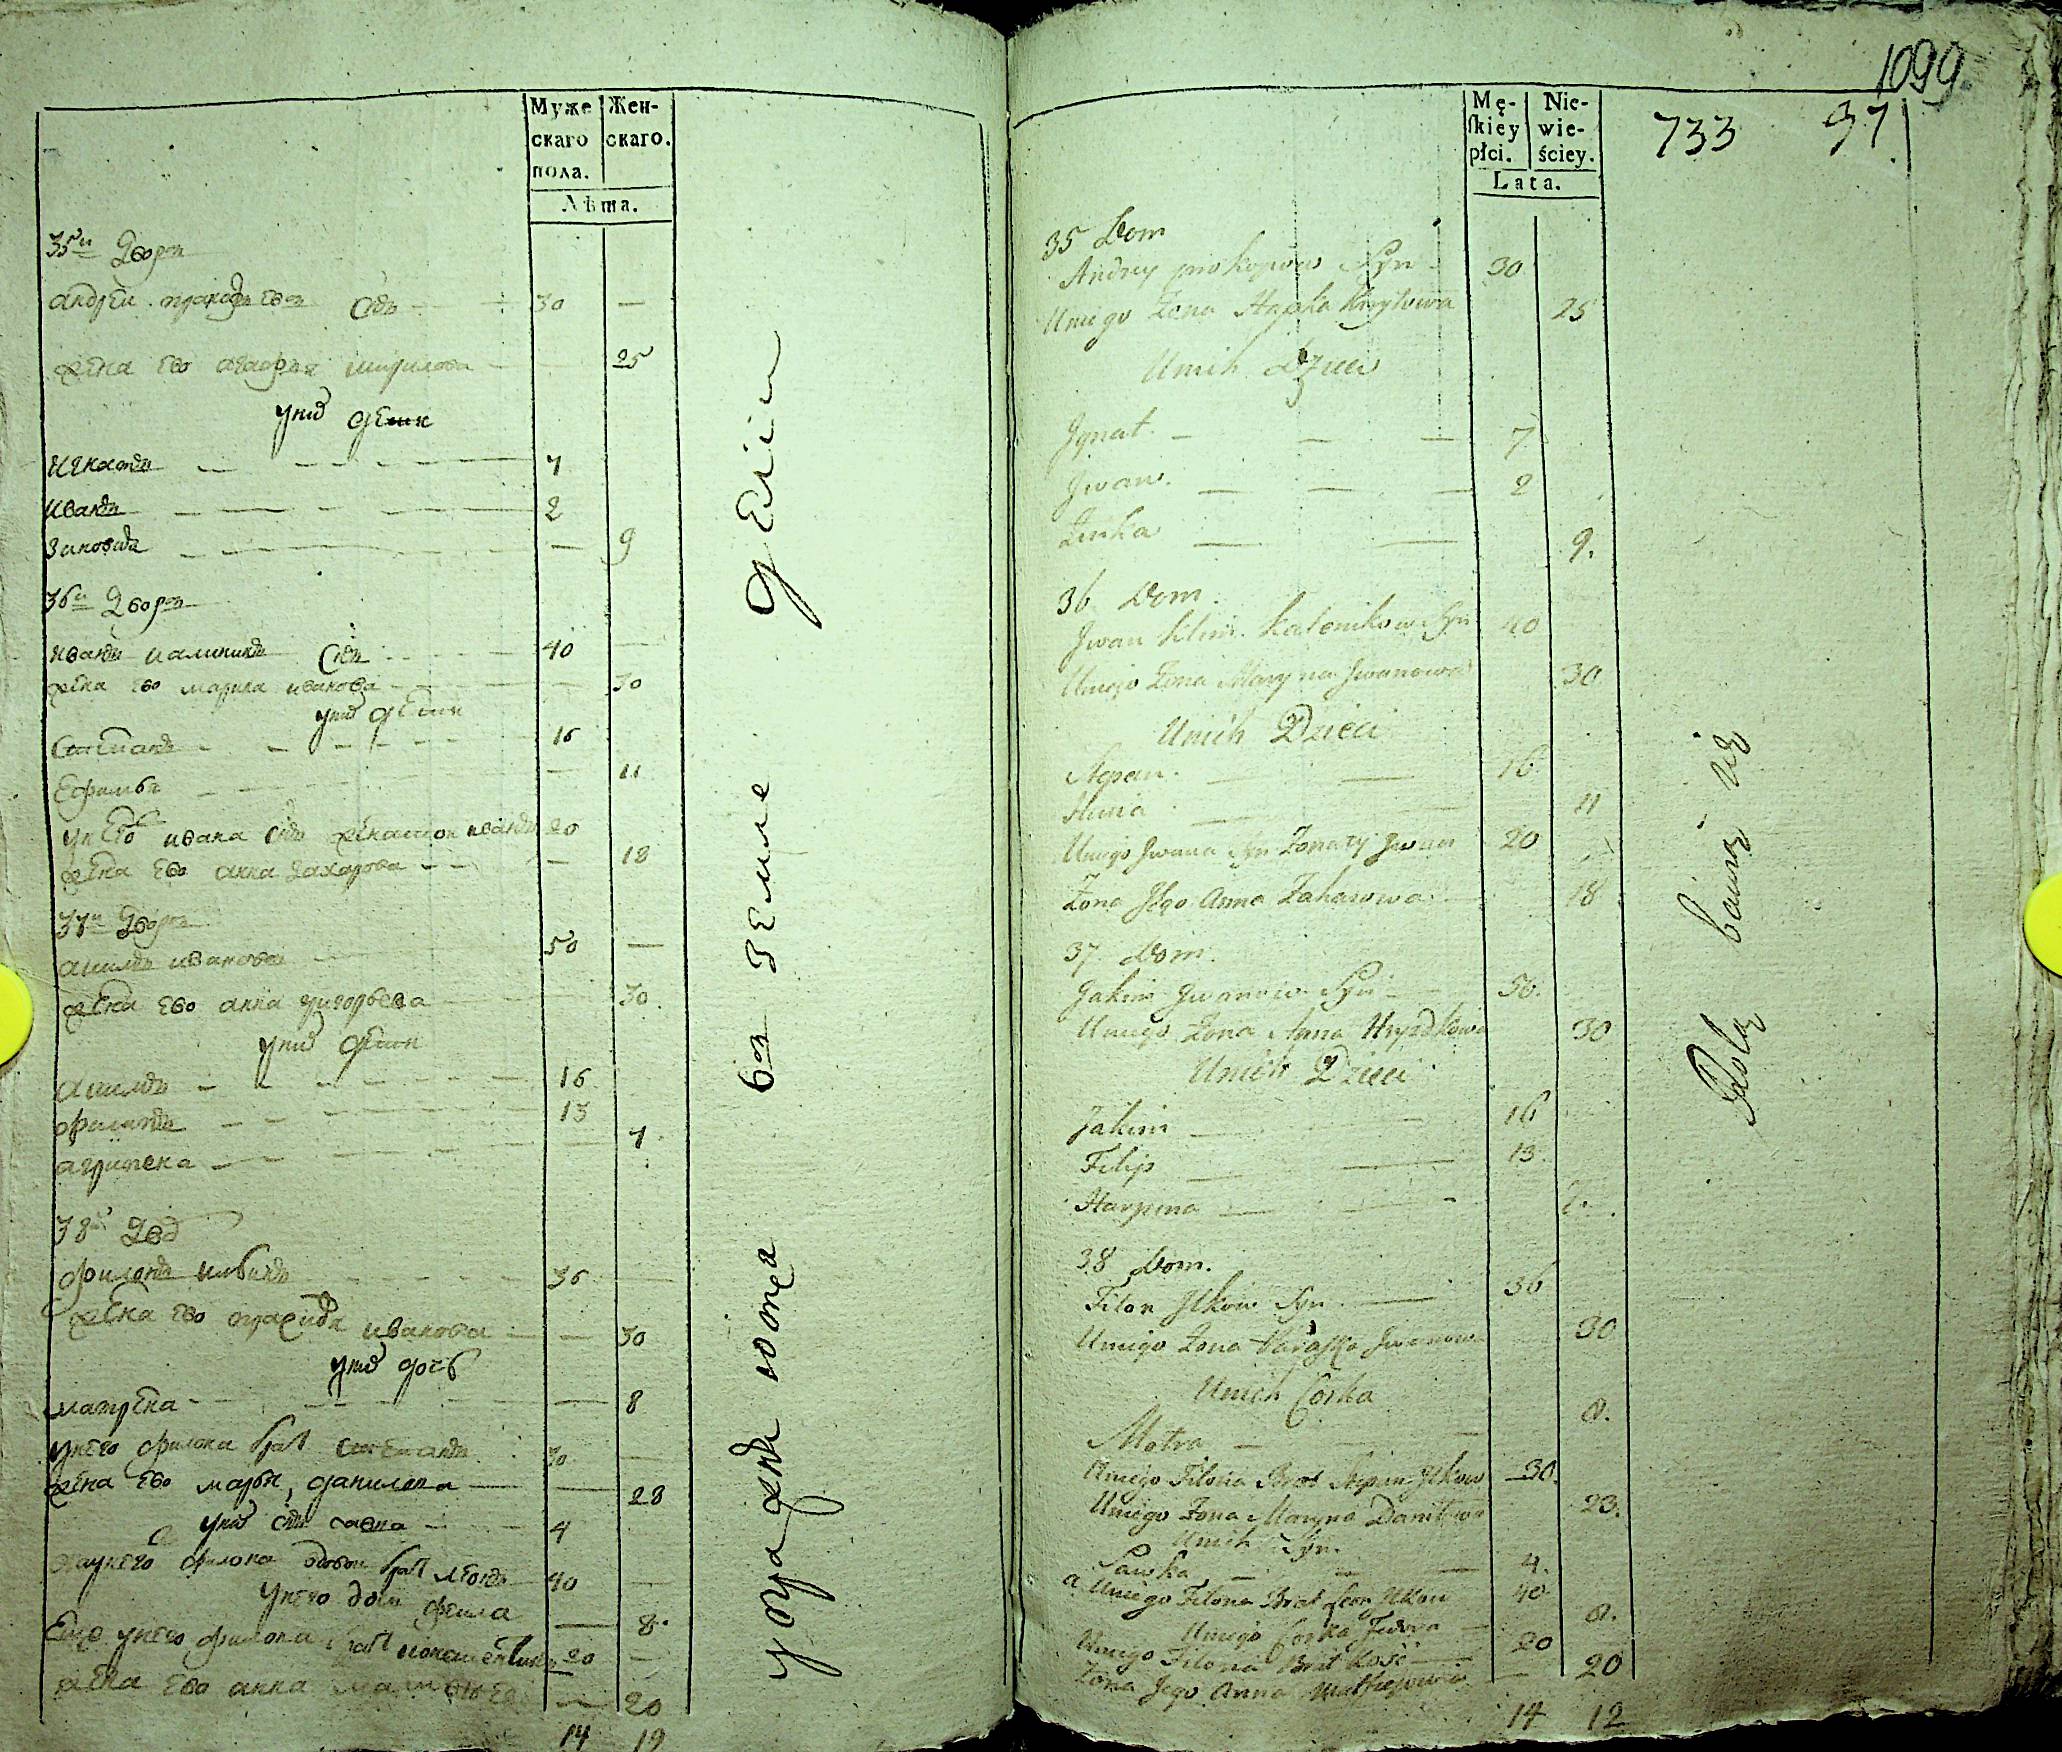 Муже
скаго
пола.
Жен-
скаго.
Лѣта.
35й Дворъ
андрей прокофьевъ Снъ 30 —
жена ево агафья кирилова — 25
уних дети
игнатъ — — 7
иванъ — — 2
зиновия — — 9
36й Дворъ
иванъ калиникъ Снъ 40 —
жена ево марина иванова — 30
уних дети
Степанъ — — 16
Ефимья — — 11
унего ивана снъ женатой иванъ 20
жена ево анна захарова — — 18
37й Дворъ
акимъ ивановъ 50 —
жена ево анна григорьева 30
уних дети
акимъ — — 16
филипъ — — 13
агрипена — — 7
38й Дво
филонъ 36
жена ево иванова — — 30
уних дочь
матрена — — 8
унего филона брат степанъ 30
жена ево марья данилова — 28
уних снъ савка — 4
филона брат леонъ 40 —
унего дочь — 8
Еще унего филона брат 20 —
жена ево анна — 20
14 12
1099
733 97
Mę-
ſkiey
płci.
Nie-
wie-
ściey.
Lata.
35 Dom
Andrey prokopow Syn 30
Uniego Żona Hapka Kryłowa 25
Unich Dzieci
Jgnat. — — — 7
Jwan. — — — 2
Zinka — — 9.
36 Dom.
Jwan Klim. Kalenikow Syn 40
Uniego Żona Maryna Jwanowa 30
Unich Dzieci
Stepan. — — 16
11
Uniego Jwana Syn Żonaty Jwan 20
Żona Jego Anna Zaharowa 18
37 Dom.
Jakim Jwanow Syn 50.
Uniego Żona Anna Hryszkowa 30
Unich Dzieci
Jakim — — 16
Filip — — 13
Harpina — — 7.
38 Dom.
Filon Jlkow Syn — 36
Uniego Żona Paraska Jwanowa 30
Unich Corka
Motra — — 8.
Uniego Filona Brat Stepan Jlkow 30.
Uniego Żona Maryna Daniłowa 23.
Unich Syn.
Sawka — — 4.
a Uniego Filona Brat Leon Jlkow 40
Uniego Corka 8.
Uniego Filona Brat Kość 20
Żona Jego Anna Matfiejowa — 20
14 12